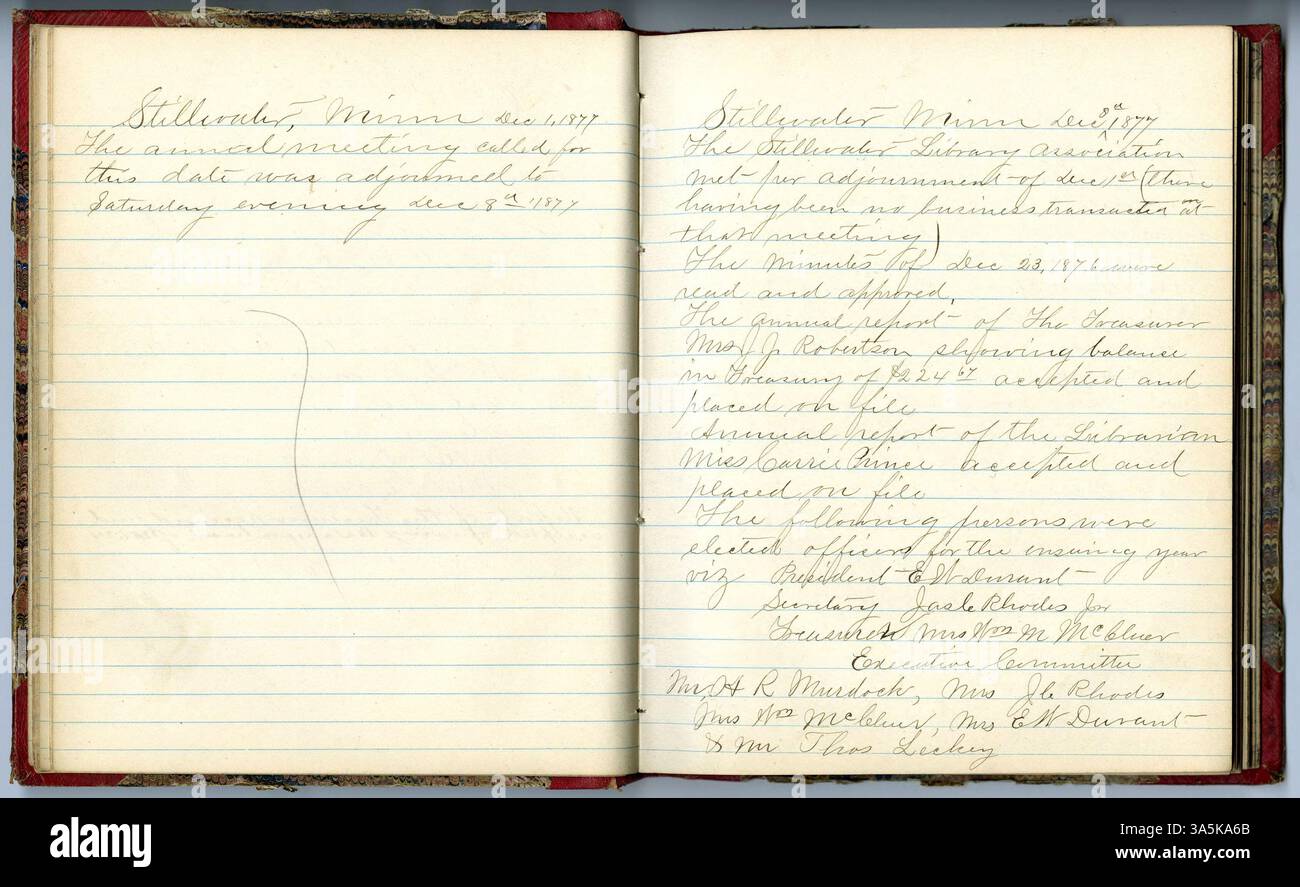 Stillwater, Minn Dec 1, 1877
The annual meeting called for
this date was adjourned to
Saturday evening Dec 8th 1877
Stillwater Minn Dec 8th 1877
The Stillwater Library Association
met per adjournment of Dec 1st (there
having been no business transacted at
that meeting)
The Minutes of Dec 23, 1876 were
read and approved.
The annual report of the Treasurer
Mrs J. Robertson showing balance
in Treasury of $224 67 accepted and
placed on file
Annual report of the Librarian
Miss Carrie Prince accepted and
placed on file
The following persons were
elected officers for the ensuing year
viz President E W Durant
Secretary Jas C Rhodes Jnr
Treasurer Mrs Wm M McCluer
Executive Committee
Mr H R Murdock, Mrs J C Rhodes
Mrs Wm McCluer, Mrs E W Durant
& Mr Thos Leckey
alamy
Image ID: 3A5KA6B
www.alamy.com